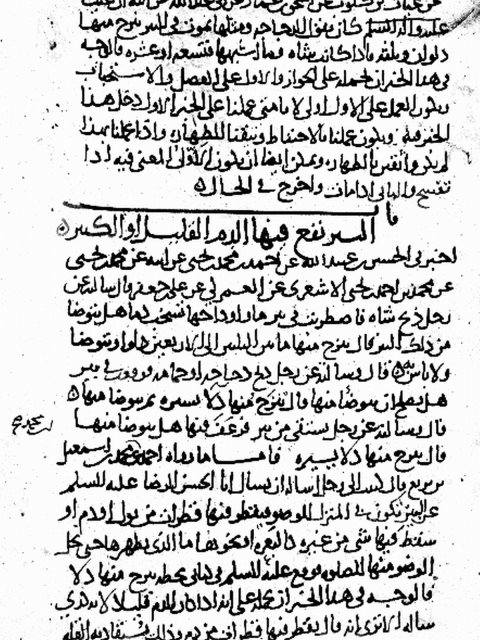 عليه السلم كان يقول الدجاجة ومثلها تموت في البئر ينزح منها
دلوان وثلثة واذا كانت شاه وما اشبهها فتسعة او عشرة فالوجه
في هذا الخبر ان نحمله على الجواز والاول على الفضل والاستحباب
ويكون العمل على الاول اولى لانا متى عملنا على الخبر الاول دخل هذا
الخبر فيه ويكون عملنا بالاحتياط وتيقنا للطهارة واذا عملنا بهذا
لم نكن واثقين بالطهارة ويمكن ايضا ان يكون الاول المعني فيه اذا
تفسخ والثاني اذا مات واخرج في الحال
باب
البئر تقع فيها الدم القليل او الكثير
اخبرني الحسين بن عبيد الله عن احمد بن محمد بن يحيى عن ابيه عن محمد بن يحيى
عن محمد بن احمد بن يحيى الاشعري عن العمركي عن علي بن جعفر قال سالته عن
رجل ذبح شاه فاضطربت في بير ماء واوداجها تشخب دما هل يتوضا
من ذلك البئر قال ينزح منها ما بين الثلثين الى الاربعين دلوا ويتوضا
ولا باس به قال وسالته عن رجل ذبح دجاجة او حمامة فوقعت في بير
هل يصلح ان يتوضا منها قال ينزح منها دلاء يسيره ثم يتوضا منها
قال وسالته عن رجل يستقي من بير فرعف فيها هل يتوضا منها
قال ينزح منها دلاء يسيره فاما ما رواه احمد بن محمد عن محمد بن اسمعيل
بن بزيع قال كتبت الى رجل اساله ان يسال ابا الحسن الرضا عليه السلم
عن البير تكون في المنزل للوضوء فيقطر فيها قطرات من بول او دم او
يسقط فيها شي من غيره كالبعرة او نحوها ما الذي يطهرها حتى يحل
الوضوء منها للصلوة فوقع عليه السلم في كتابي بخطه ينزح منها دلاء
فالوجه في هذا الخبر ان نحمله على انه اذا كان الدم قليلا لانه الذي
ساله الا ترى انه قال يقطر فيها قطرات من دم وذلك يستفاد به القلة